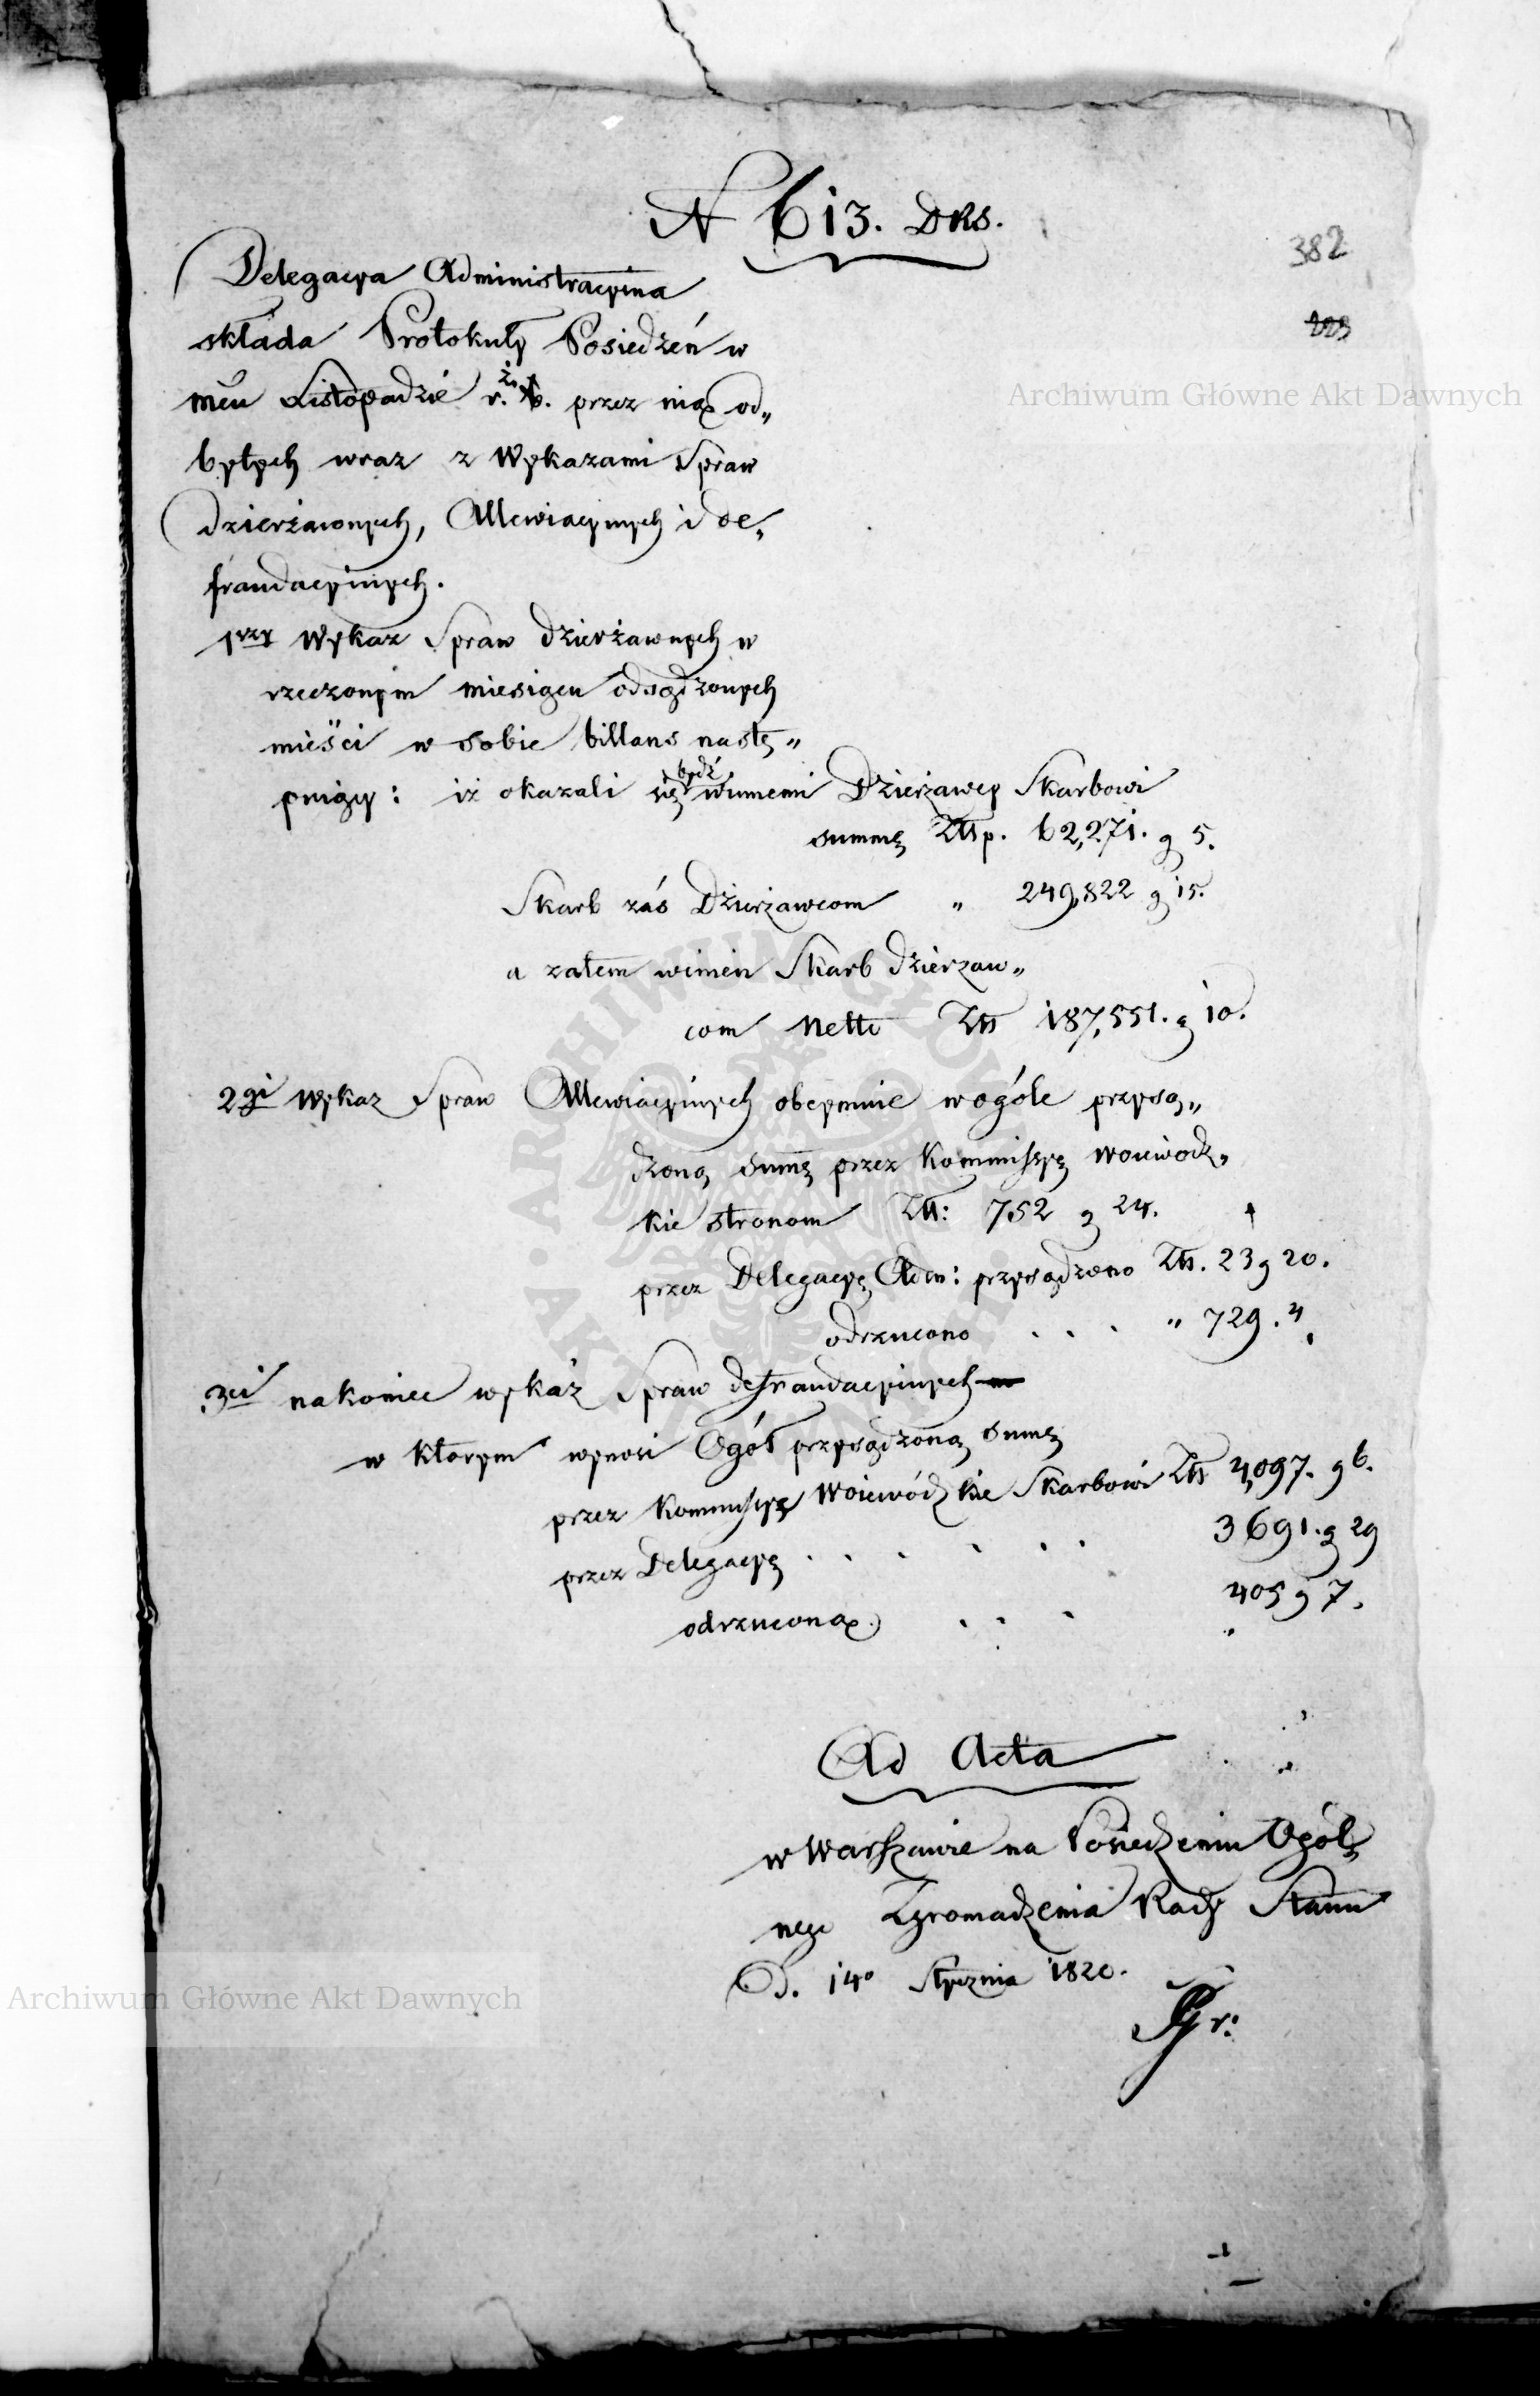 N 613. DRS.
382
Delegacya Administracyina
składa Protokuły Posiedzeń w
mcu Listopadzie r. z. przez nią od„
bytych wraz z Wykazami Spraw
dzierżawnych, Allewiacyinych i de„
fraudacyinych.
1szy Wykaz Spraw dzierżawnych w
rzeczonym miesiącu odsądzonych
mieści w sobie billans nastę„
puiący: iż okazali się bydź winnemi Dzierżawcy Skarbowi
summę Złłp. 62,271. g 5.
Skarb zaś Dzierżawcom „ 249,822 g 15.
a zatem winien Skarb dzierzaw„
com Netto Złł 187,551. g 10.
2gi Wykaz Spraw Allewiacyinych obeymuie w ogóle przysą„
dzoną summę przez Kommissye Woiewodz„
kie stronom Złł: 752 g 24.
przez Delegacyę Adm: przysądzono Złł. 23 g 20.
odrzucono . . . „ 729. 4
3ci nakoniec wykaz Spraw defraudacyinych
w ktorym wynosi Ogół przysądzoną summę
przez Kommissye Woiewódzkie Skarbowi Złł 4,097. g 6.
przez Delegacyę . . . . . . 3691. g 29
odrzucona . . . 405 g 7.
Ad Acta
w Warszawie na Posiedzeniu Ogól„
nego Zgromadzenia Rady Stanu
D. 14o Stycznia 1820.
Archiwum Główne Akt Dawnych
Archiwum Główne Akt Dawnych